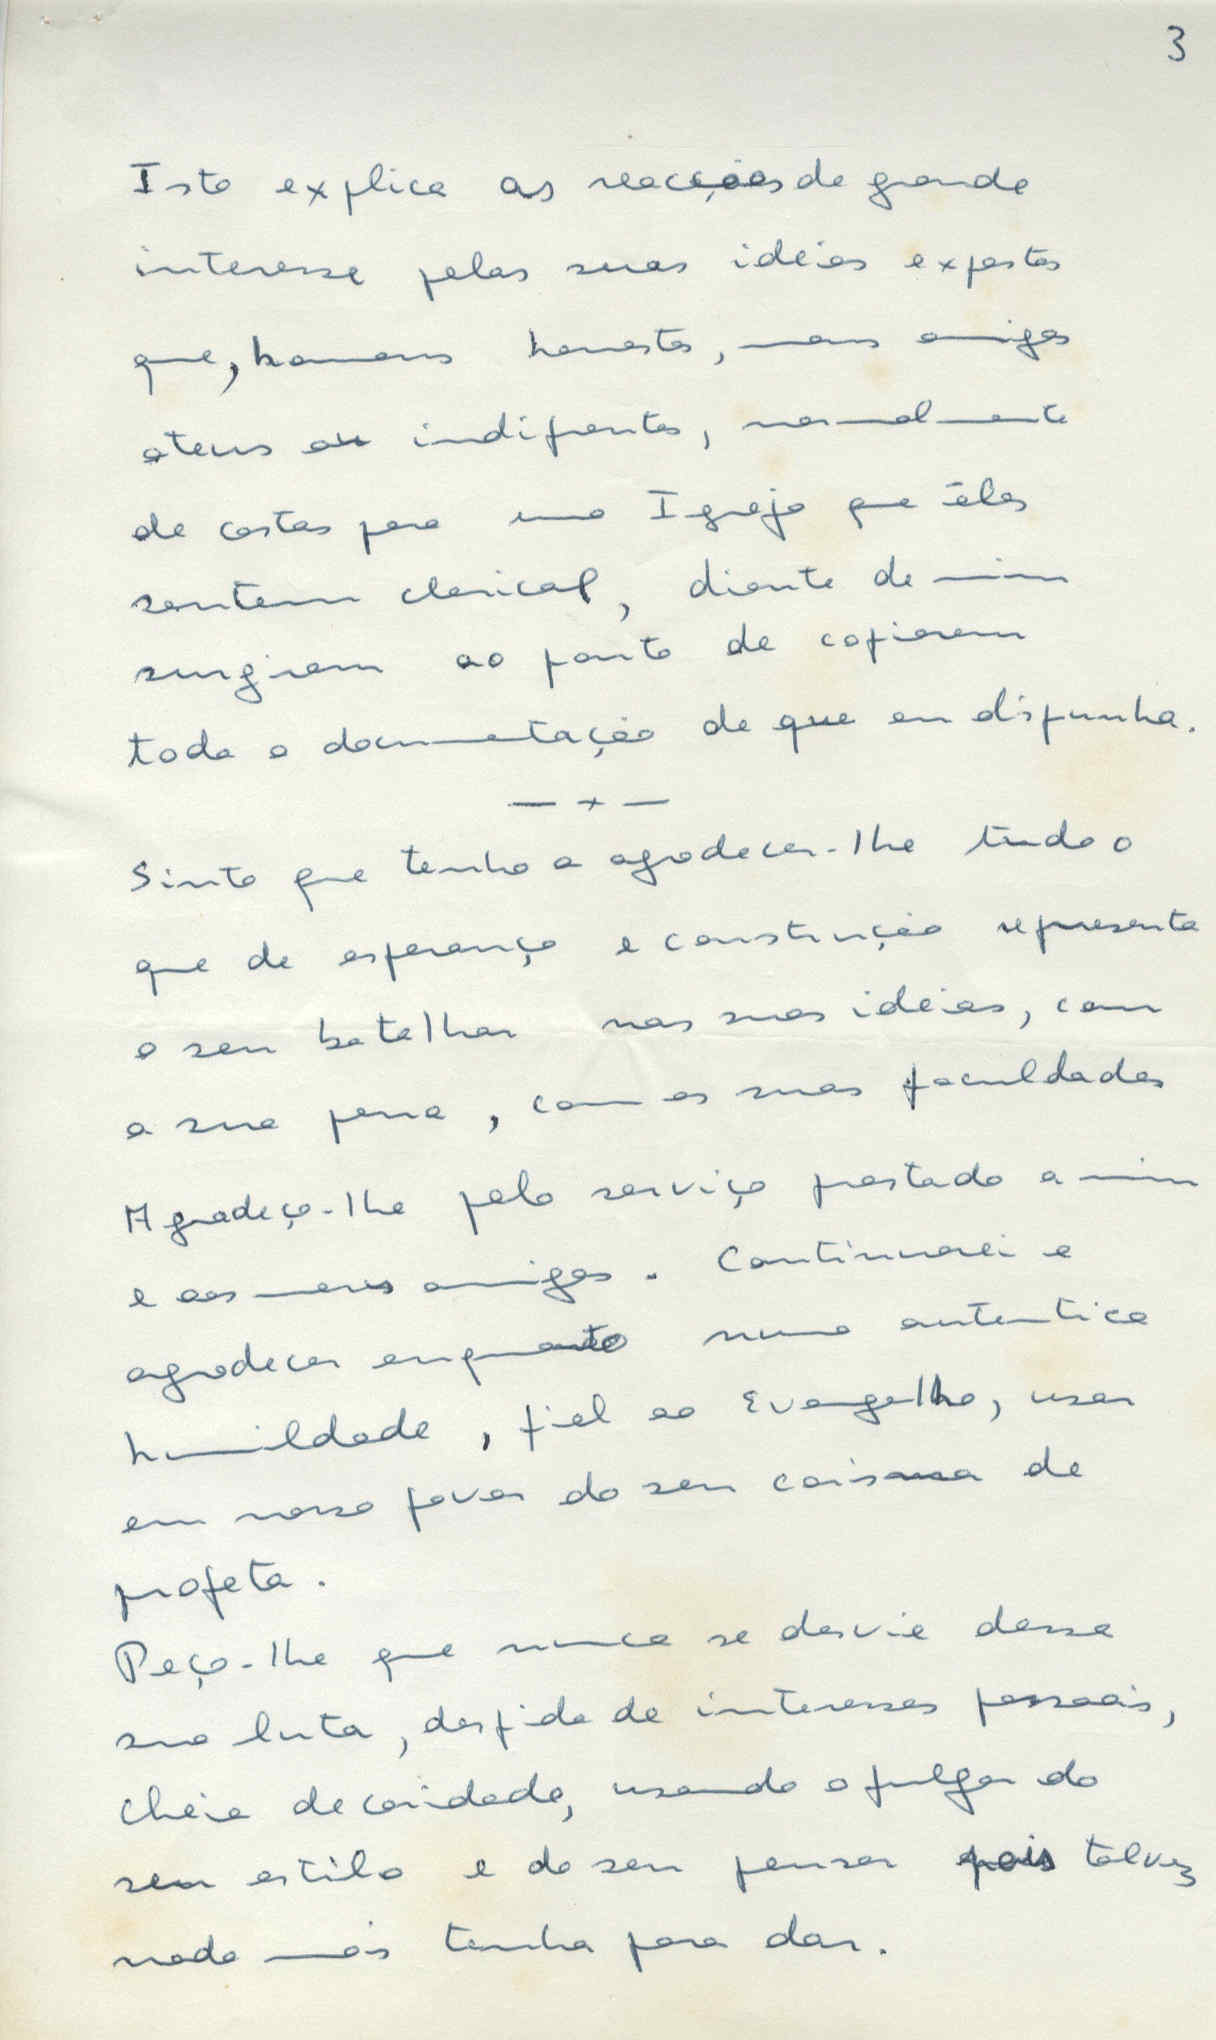 3
Isto explica as reacções de grande
interesse pelas suas idéias expostas
que, homens honestos, meus amigos
ateus ou indifrentes, normalmente
de costas para uma Igreja que êles
sentem clerical, diante de mim
surgiram ao ponto de copiarem
toda a documentação de que eu dispunha.
— + —
Sinto que tenho a agradecer-lhe tudo o
que de esperança e construção representa
o seu batalhar nas suas idéias, com
a sua pena, com as suas faculdades
Agradeço-lhe pelo serviço prestado a mim
e aos meus amigos. Continuarei a
agradecer enquanto numa autentica
humildade, fiel ao Evangelho, usar
em nosso favor do seu carisma de
profeta.
Peço-lhe que nunca se desvie dessa
sua luta, despida de interesses pessoais,
cheia de caridade, usando o fulgor do
seu estilo e do seu pensar pois talvez
nada mais tenha para dar.